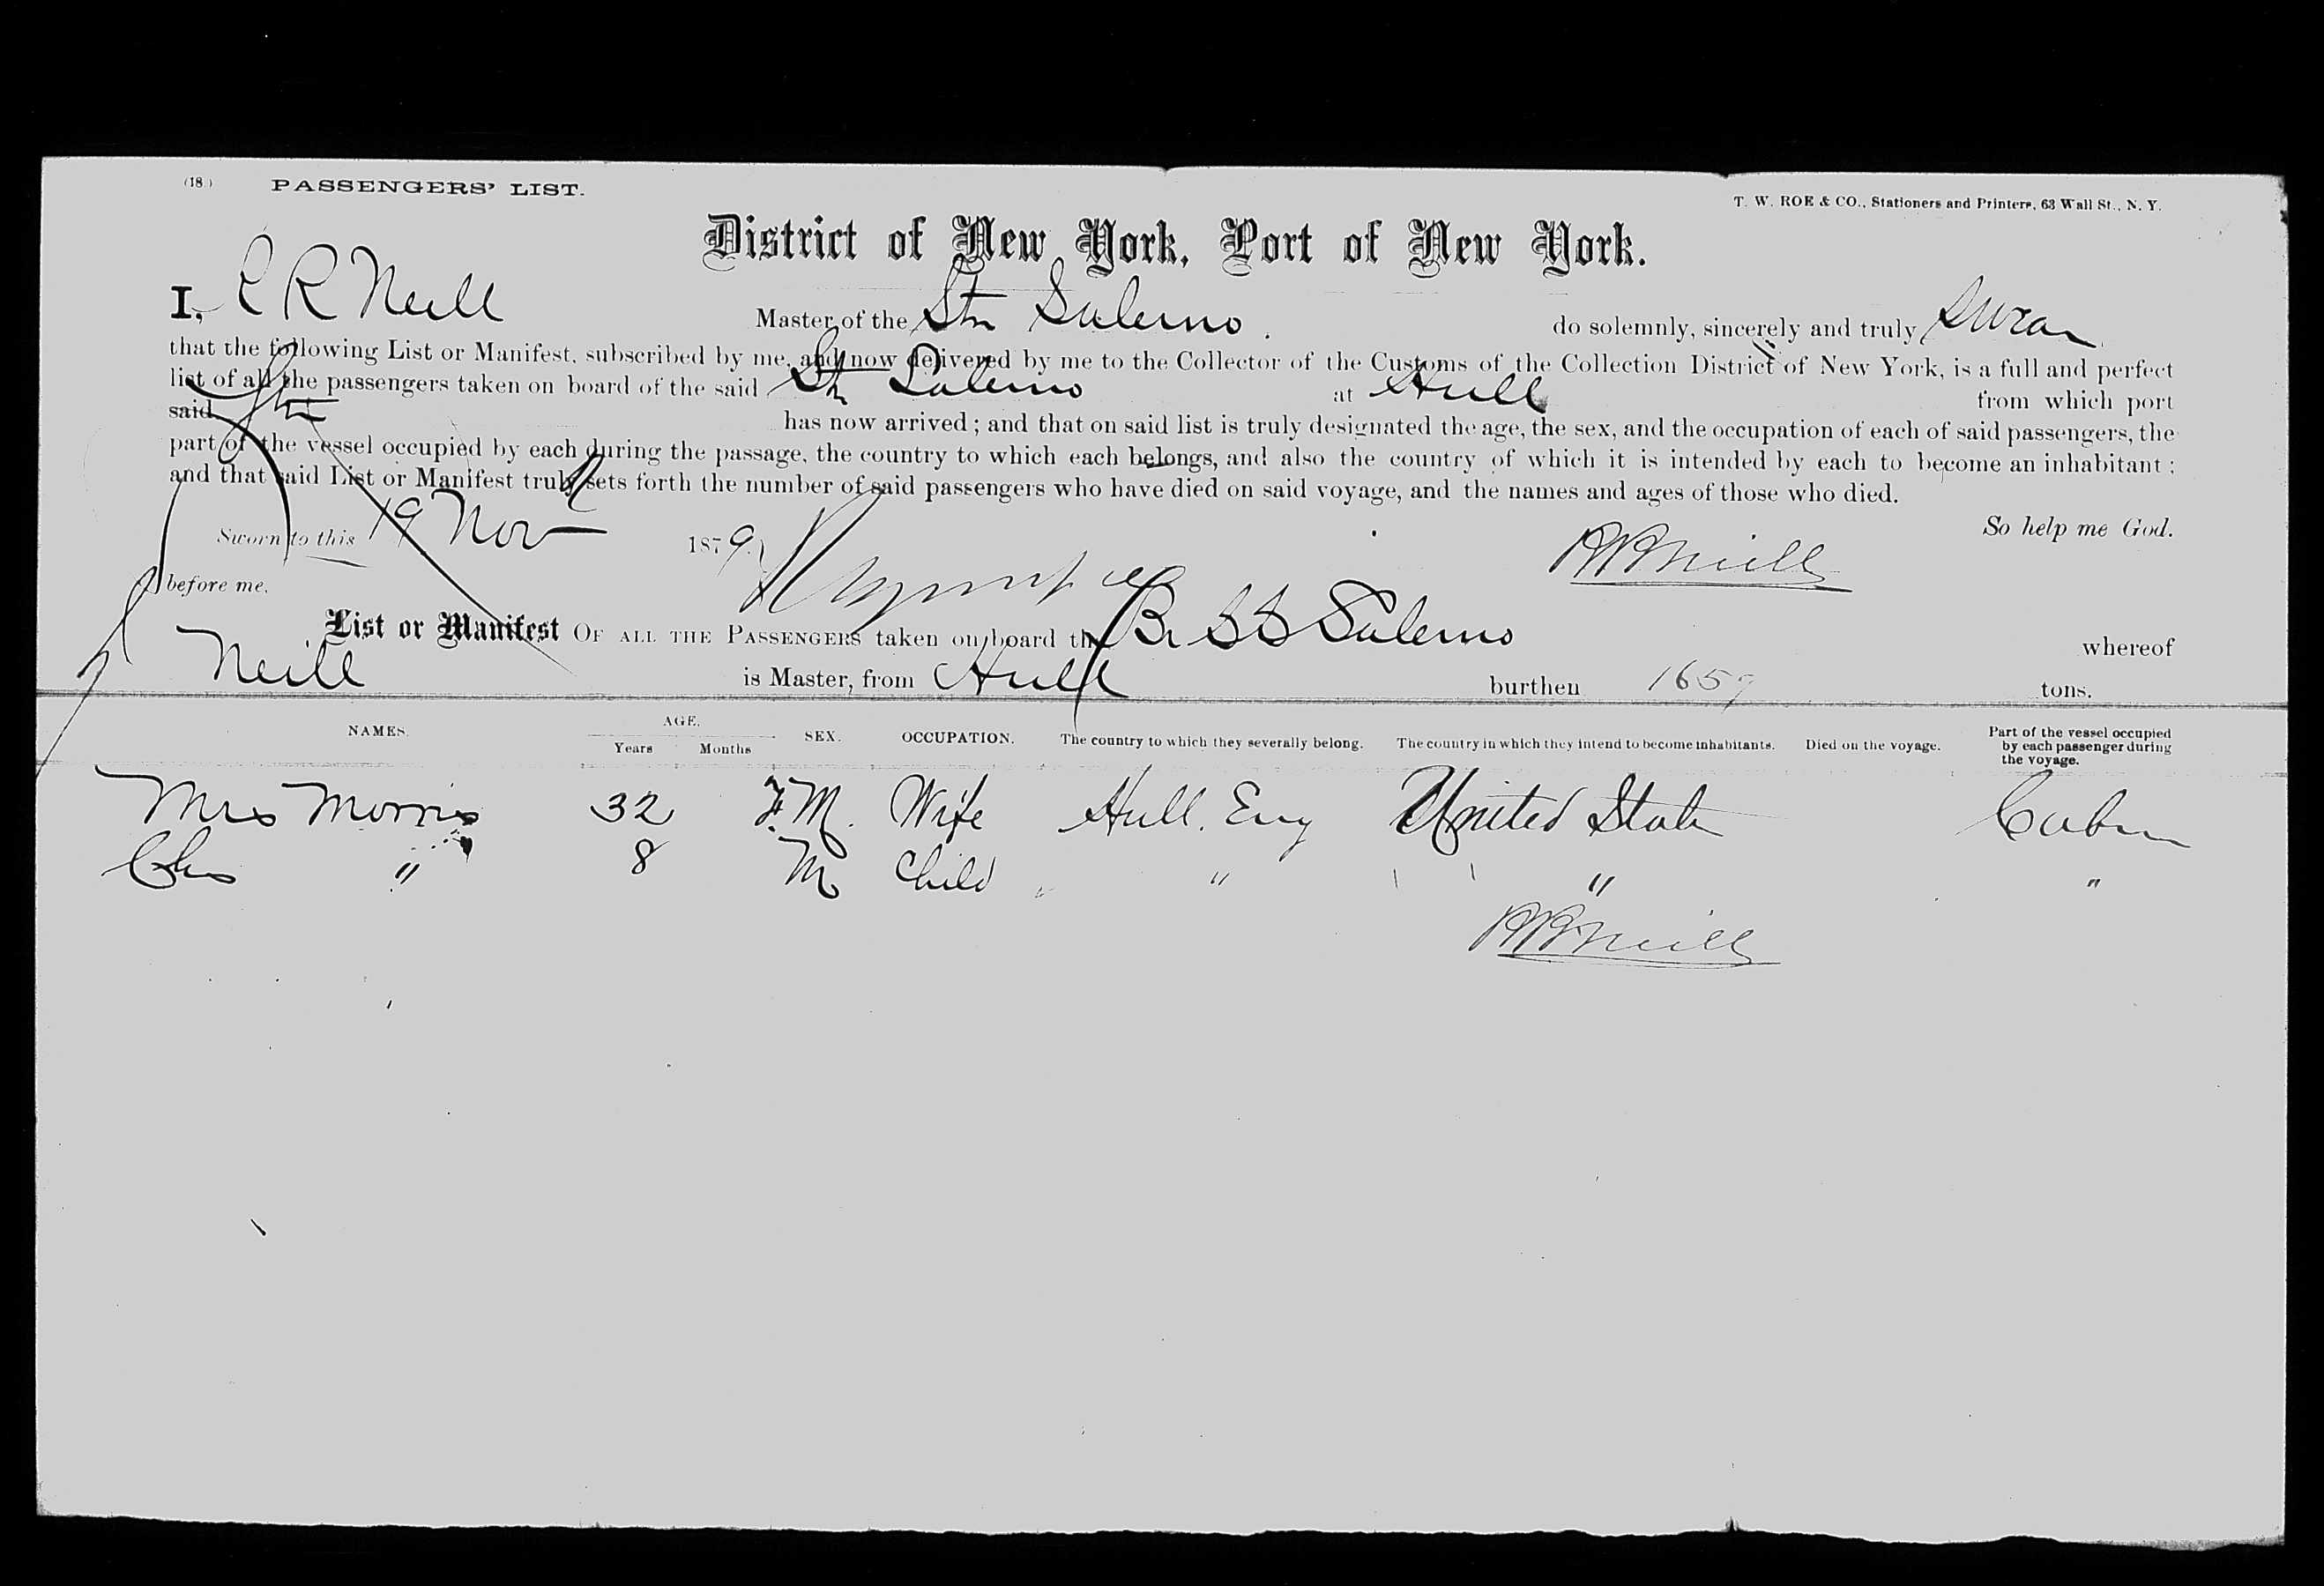 (18.) PASSENGERS' LIST. T. W. ROE & CO., Stationers and Printers, 63 Wall St., N. Y.
District of New York, Port of New York.
I, R R Neill Master of the Str Salerno do solemnly, sincerely and truly Swear
that the following List or Manifest, subscribed by me, and now delivered by me to the Collector of the Customs of the Collection District of New York, is a full and perfect
list of all the passengers taken on board of the said Str Salerno at Hull from which port
said Str has now arrived; and that on said list is truly designated the age, the sex, and the occupation of each of said passengers, the
part of the vessel occupied by each during the passage, the country to which each belongs, and also the country of which it is intended by each to become an inhabitant;
and that said List or Manifest truly sets forth the number of said passengers who have died on said voyage, and the names and ages of those who died.
So help me God.
Sworn to this 19 Nov 1879 RR Neill
before me.
List or Manifest OF ALL THE PASSENGERS taken on board the Br SS Salerno whereof
Neill is Master, from Hull burthen 1659 tons.
NAMES. AGE. Years Months SEX. OCCUPATION. The country to which they severally belong. The country in which they intend to become inhabitants. Died on the voyage. Part of the vessel occupied by each passenger during the voyage.
Mrs Morris 32 F M. Wife Hull. Eng United State Cabin
Chs " 8 M Child " " "
RR Neill